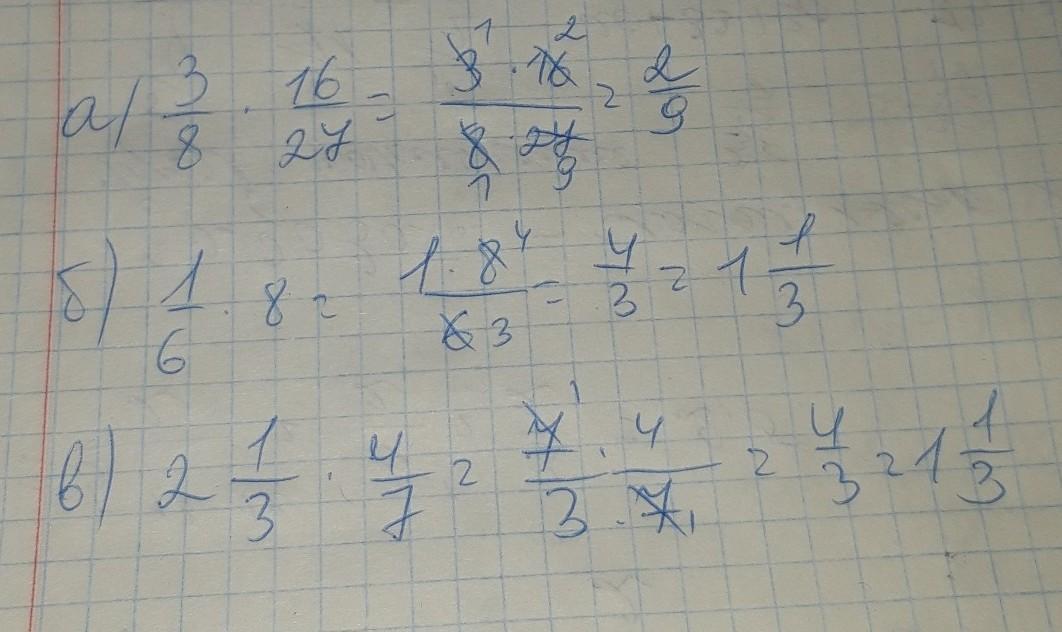 а) 3/8 · 16/27 = 3 1 · 16 2 / 8 1 · 27 9 = 2/9
б) 1/6 · 8 = 1 · 8 4 / 6 3 = 4/3 = 1 1/3
в) 2 1/3 · 4/7 = 7 1 · 4 / 3 · 7 1 = 4/3 = 1 1/3